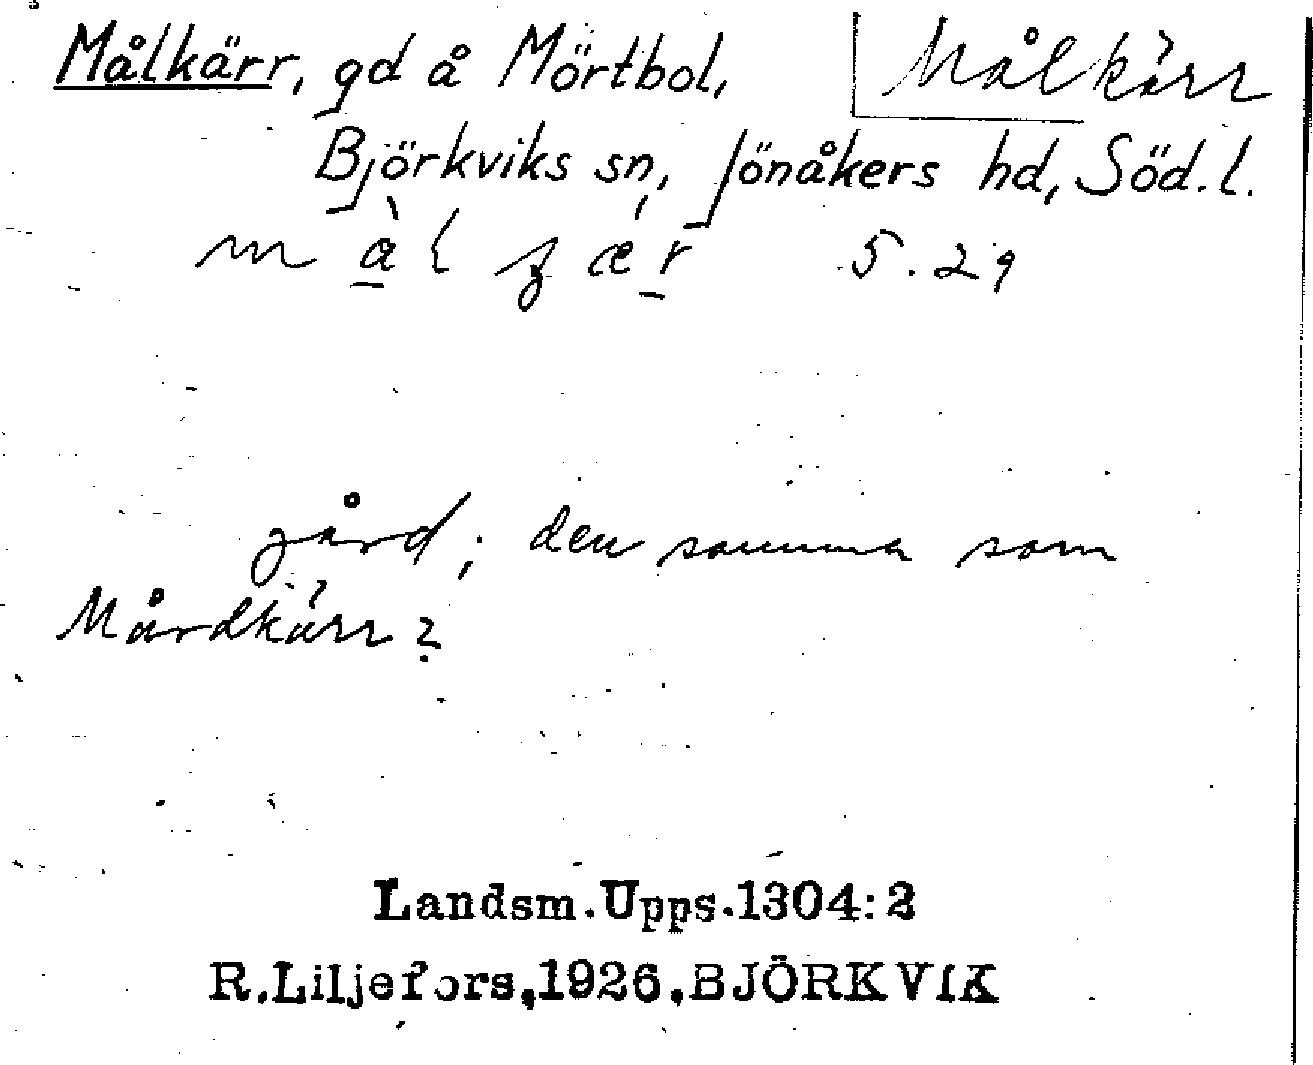 Målkärr, gd å Mörtbol,
Målkärr
Björkviks sn, Jönåkers hd, Söd.l.
5.29
gård; den samma som
Mårdkärr?
Landsm.Upps.1304:2
R.Liljefors,1926,BJÖRKVIK